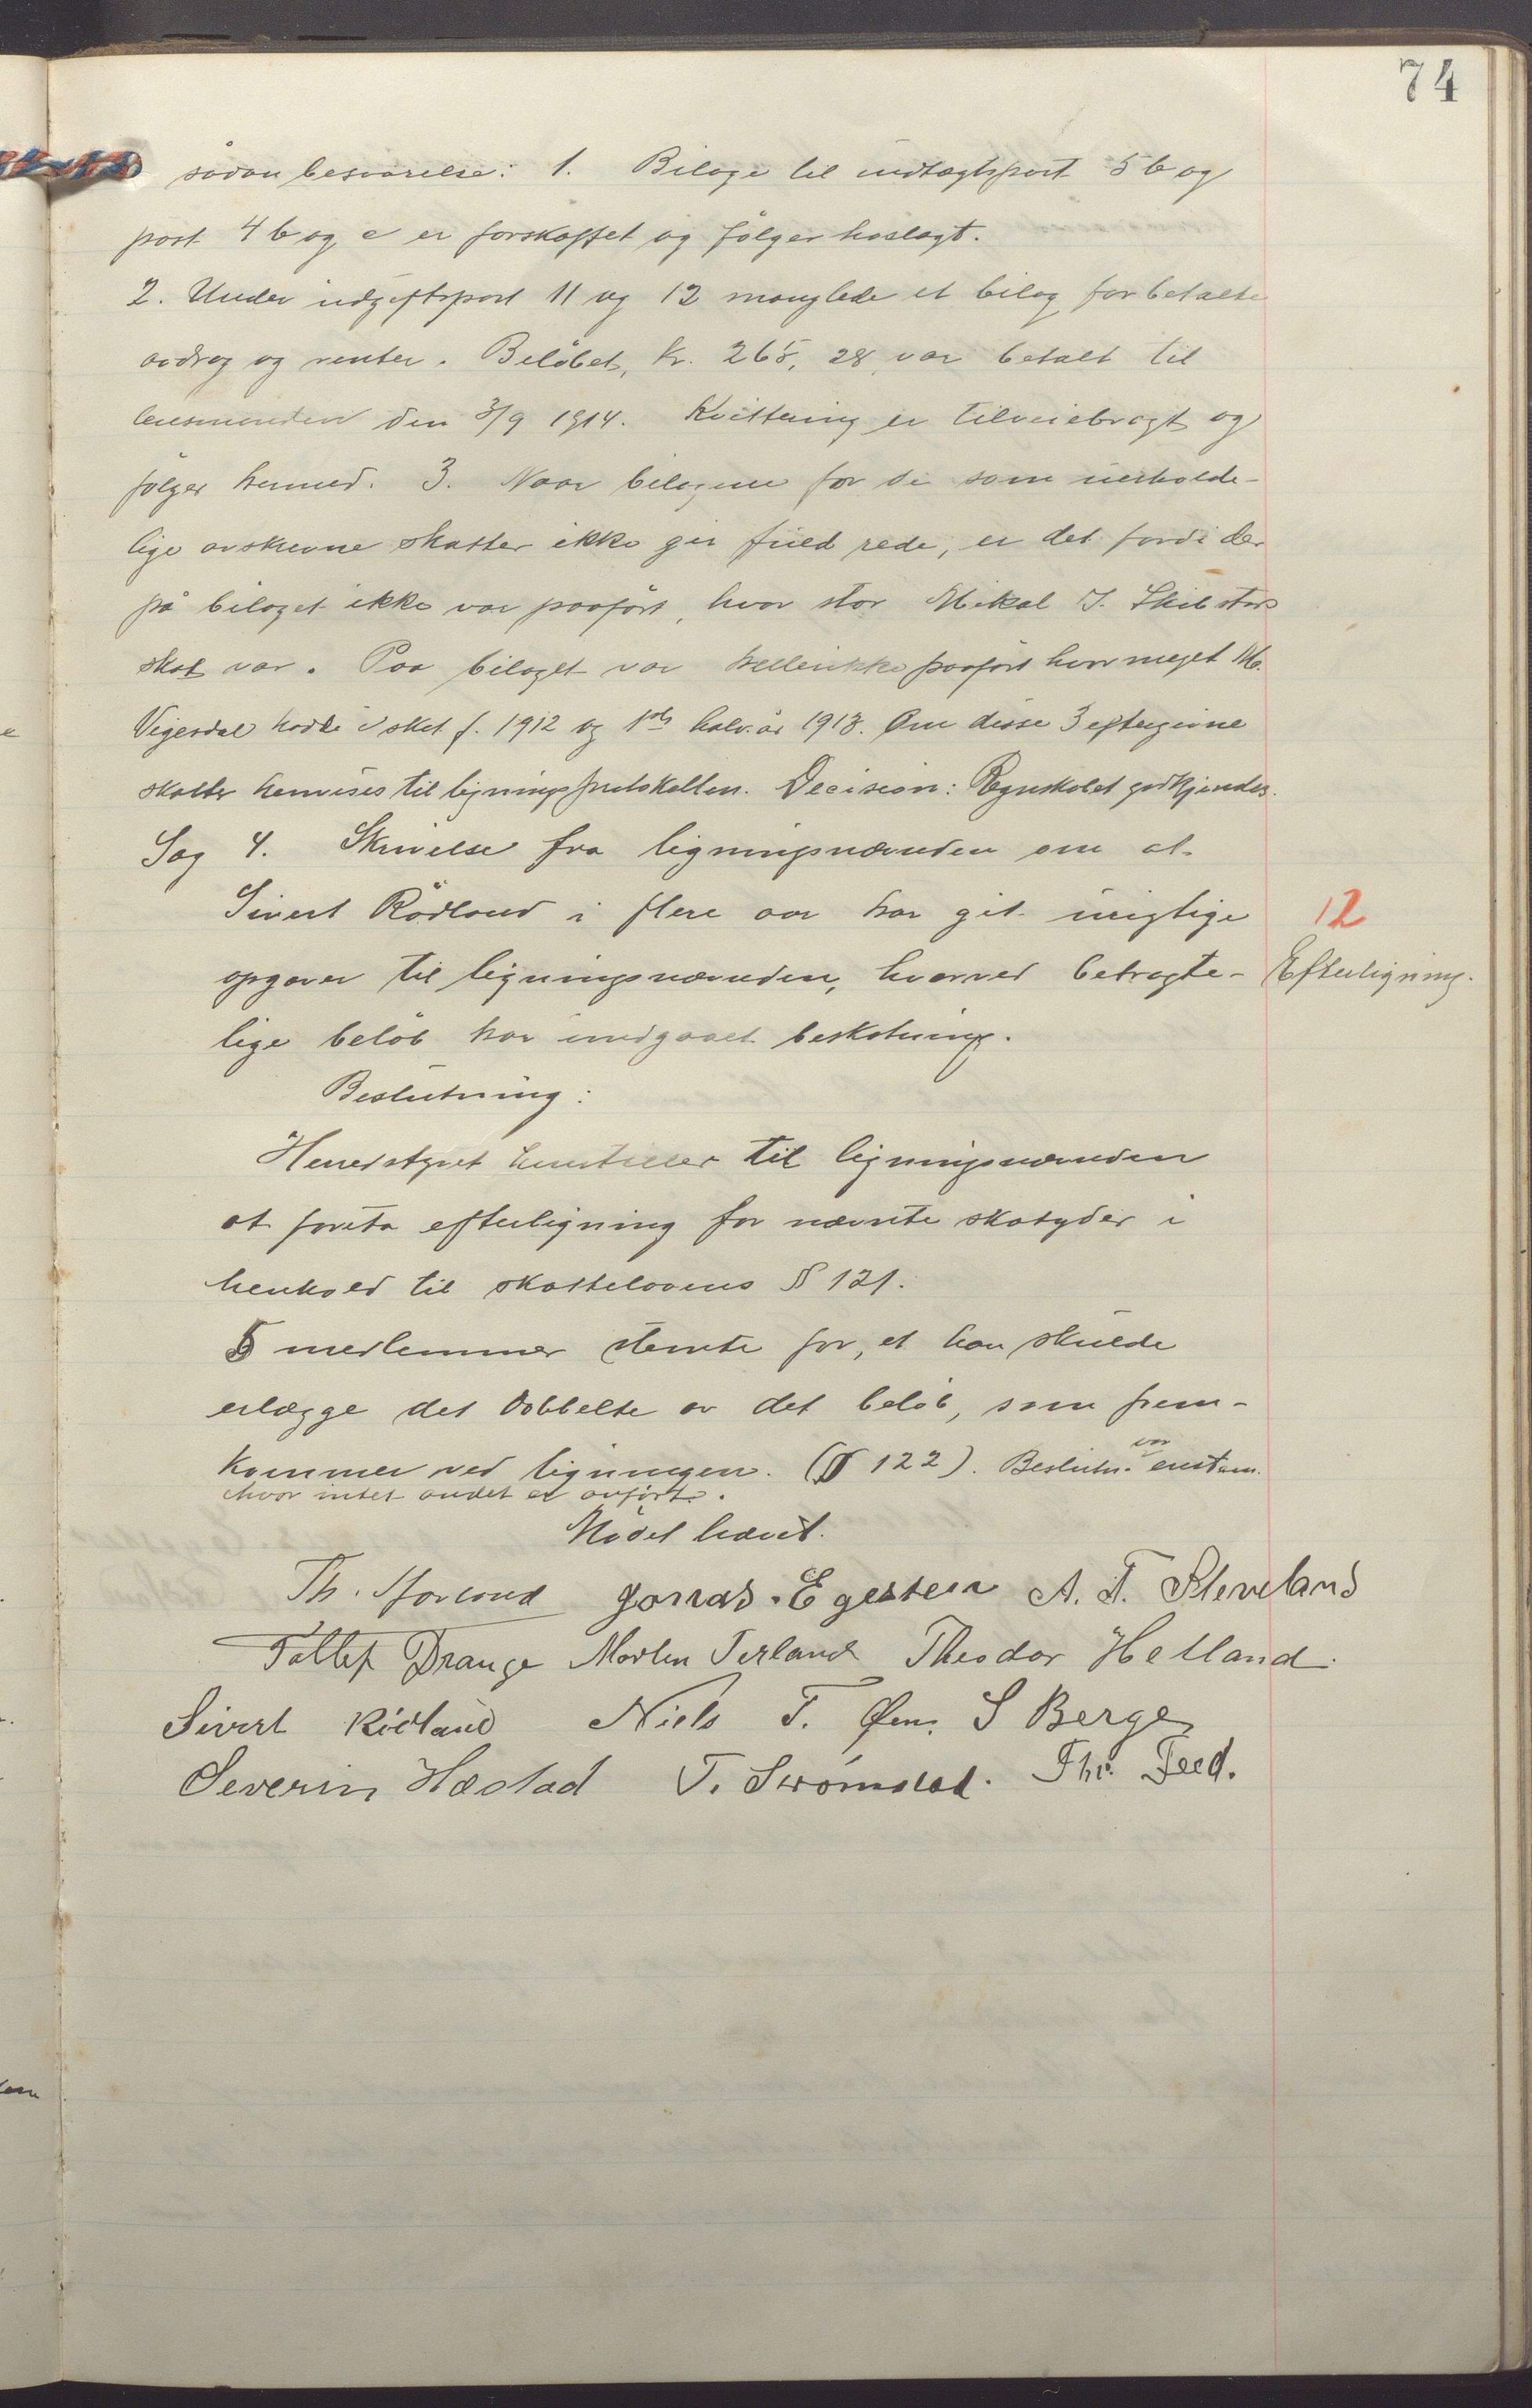 74
sådan besvarelse: 1. Bilage til indtægtspost 5 b og
post 4 b og c er forskaffet og følger hoslagt.
2. Under udgiftspost 11 og 12 manglede et bilag for betalte
avdrag og renter. Beløbet, kr. 265,28, var betalt til
lensmanden den 3/9 1914. Kvittering er tilveiebragt og
følger hermed. 3. Naar bilagene for de som uerholde-
lige avskrevne skatter ikke gir fuld rede, er det fordi der
på bilaget ikke var paaført, hvor stor Mikal J. Skibstads
skat var. Paa bilaget var hellerikke paaført hvor meget M.
Vigesdal hadde i skat f. 1912 og 1ste halv.år 1913. Om disse 3 eftergivne
skatter henvises til ligningsprotokollen. Decision: Regnskabet godkjendes.
Sag 4. Skrivelse fra ligningsnævnden om at
Sivert Rödland i flere aar har git urigtige
opgaver til ligningsnævnden, hvorved betragte-
lige beløb har undgaaet beskatning.
12
Efterligning.
Beslutning:
Herredstyret henstiller til ligningsnævnden
at foreta efterligning for nævnte skatyder i
henhold til skattelovens § 121.
5 medlemmer stemte for, at han skulde
erlægge det dobbelte av det beløb, som frem-
kommer ved ligningen. (§ 122). Beslutn. var enstem.
hvor intet andet er anført.
Mødet hævet.
Th. Jonas Egestein A. T. Kleveland
Tollef Drange Morten Terland Theodor Helland.
Sivert Rödland Niels T. Øen. S Berge
Severin Hæstad T. Strömstad. Thr. Feed.